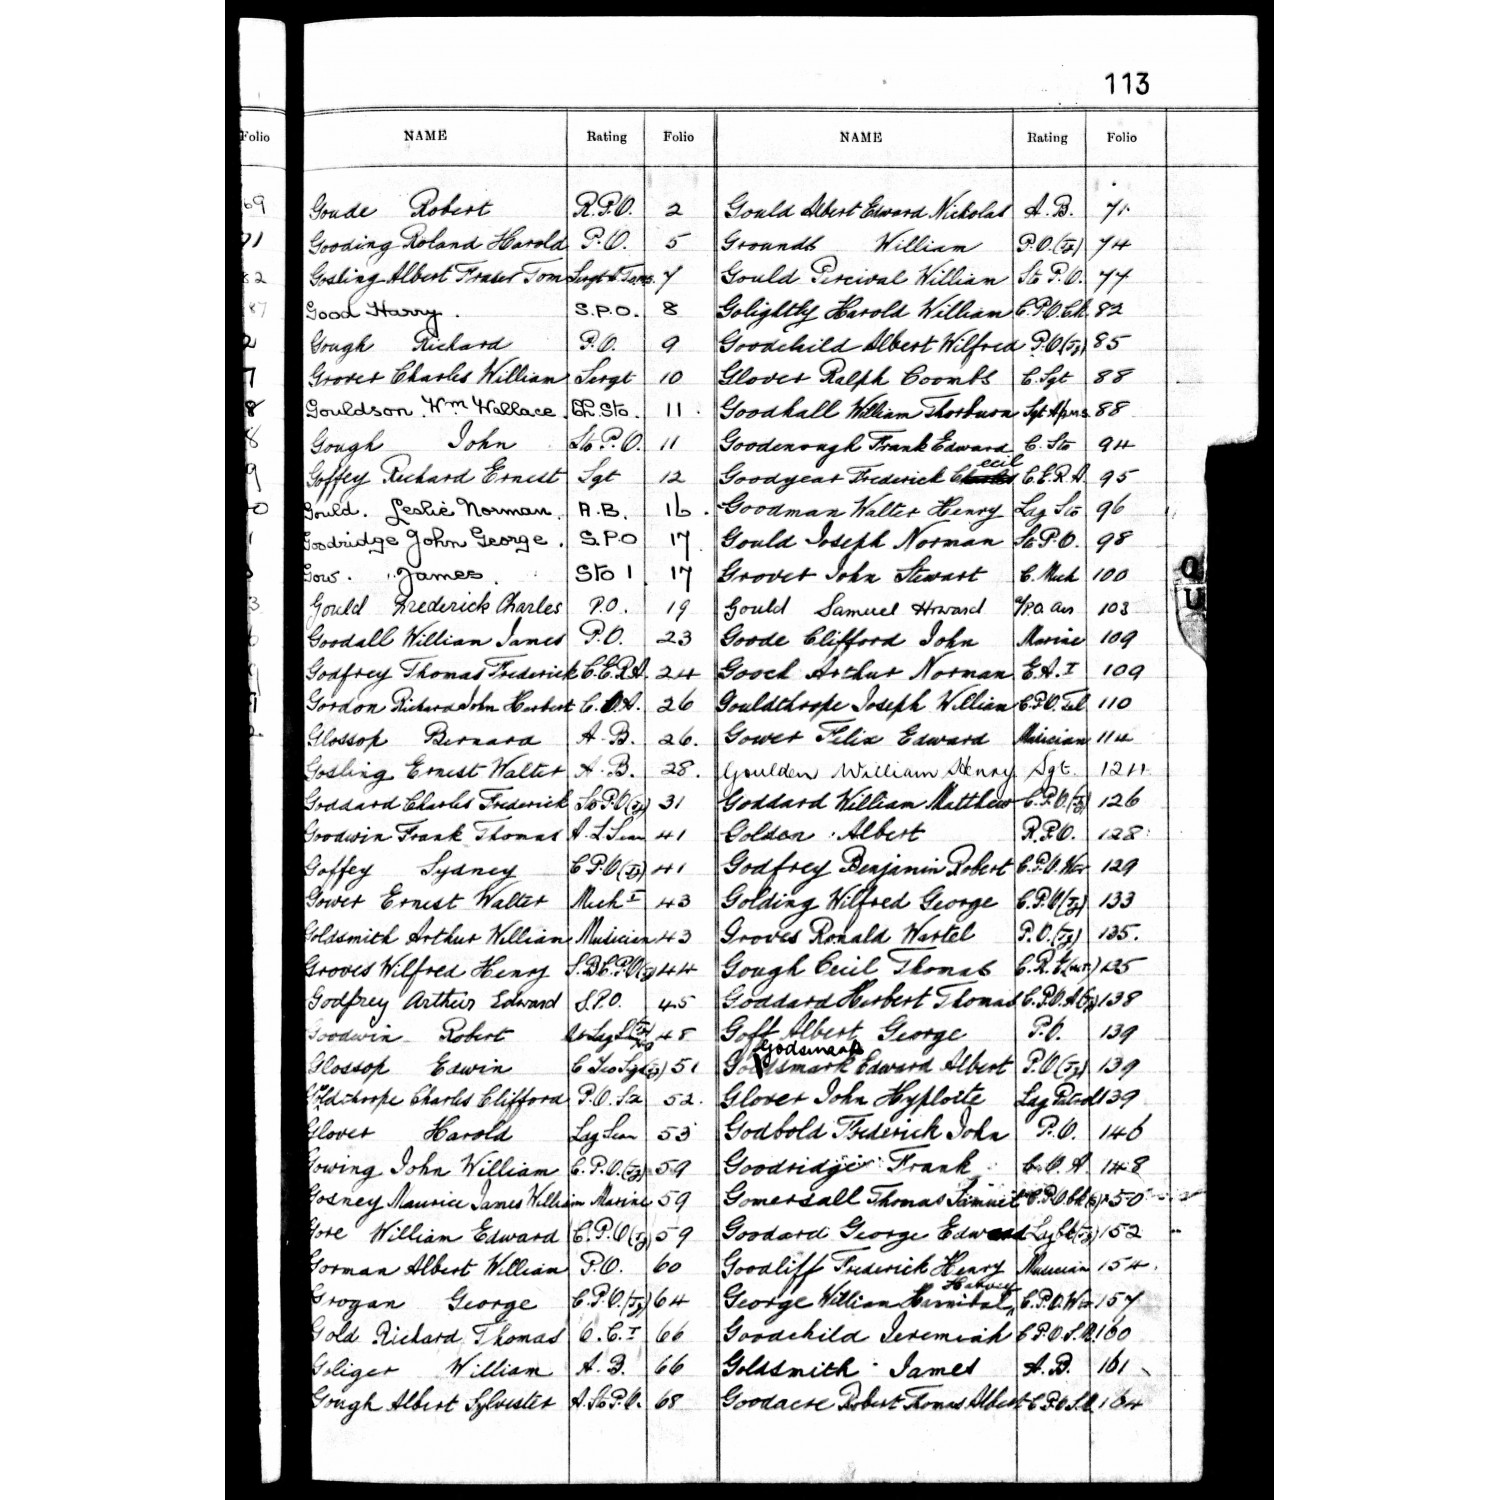 113
Folio NAME Rating Folio NAME Rating Folio
69
71
82
87
Goude Robert R.P.O. 2
Gooding Roland Harold P.O. 5
Gosling Albert Fraser Tom 7
Good Harry. S.P.O. 8
Gough Richard P.O. 9
Grover Charles William Sergt 10
Gouldson Wm Wallace. Ch. Sto. 11.
Gough John Sto P.O. 11
Goffey Richard Ernest Sgt 12
Gould. Leslie Norman. A.B. 16.
Goodridge John George. S.P.O 17
Gow. James. Sto 1 17
Gould Frederick Charles P.O. 19
Goodall William James P.O. 23
Godfrey Thomas Frederick C.E.R.A. 24
Gordon Richard John Herbert C.O.A. 26
Glossop Bernard A.B. 26.
Gosling Ernest Walter A.B. 28.
Goddard Charles Frederick Sto P.O (Tg) 31
Goodwin Frank Thomas A.L. Sean 41
Goffey Sydney C.P.O (Tg) 41
Gower Ernest Walter Mech I 43
Goldsmith Arthur William Musician 43
Groves Wilfred Henry 44
Godfrey Arthur Edward S.P.O. 45
Goodwin Robert 48
Glossop Edwin C Yeo Sgs (Tg) 51
Goldthorpe Charles Clifford P.O. 52.
Glover Harold Lag Sean 53
Gowing John William C.P.O. (Tg) 59
Gosney Maurice James William Marine 59
Gore William Edward C.P.O (Tg) 59
Gorman Albert William P.O. 60
Grogan George C.P.O. (Tg) 64
Gold Richard Thomas O.C. I 66
Goliger William A.B. 66
Gough Albert Sylvester A. Sto P.O. 68
Gould Albert Edward Nickolas A.B. 71.
Grounds William P.O. (Tg) 74
Gould Percival William Sto P.O. 77
Golightly Harold William C.P.O. Ck 82
Goodchild Albert Wilfred P.O. (Tg) 85
Glover Ralph Coombs C. Sgt 88
Goodhall William Thorburn 88
Goodenough Frank Edward C. Sto 94
Goodyear Frederick Cecil C.E.R.A. 95
Goodman Walter Henry Lag Sto 96
Gould Joseph Norman Sto P.O. 98
Grover John Stewart C. Mech 100
Gould Samuel Howard 103
Goode Clifford John Marine 109
Gooch Arthur Norman E.A. I 109
Gouldthrope Joseph William C.P.O. Tel 110
Gower Felix Edward Musician 114
Goulden William Henry Sgt.
Goddard William Matthew C.P.O. (Tg) 126
Goldon Albert R.P.O. 128
Godfrey Benjamin Robert C.P.O. Wtr 129
Golding Wilfred George C.P.O (Tg) 133
Groves Ronald Wartel P.O. (Tg) 135.
Gough Cecil Thomas 135
Goddard Herbert Thomas 138
Goff Albert George P.O. 139
Godsmark
Goldsmark Edward Albert P.O (Tg) 139
Glover John Hyploite Lag Patrol 139
Godbold Frederick John P.O. 146
Goodridge Frank C.O.A. 148
Gomersall Thomas Samuel 150
Goodard George Edward 152
Goodliff Frederick Henry Musician 154.
Harvey
George William Hannibal C.P.O. Wtr 157
Goodchild Jeremiah C.P.O. 160
Goldsmith James A.B. 161
Goodacre Robert Thomas Albert C.P.O. 164